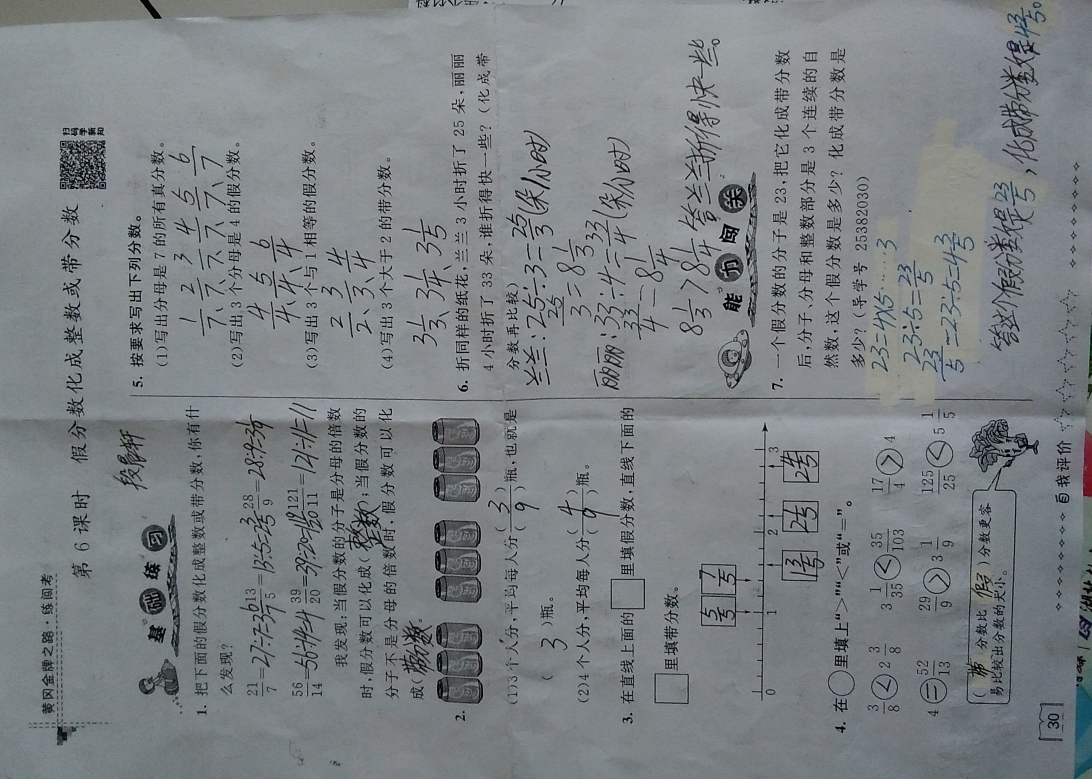 黄冈金牌之路·练闯考
第6课时 假分数化成整数或带分数
扫码学新知
基础练习
1. 把下面的假分数化成整数或带分数,你有什
么发现?
21/7=27÷7=3 6/7 13/5=13÷5=2 3/5 28/9=28÷9=3 1/9
56/14=56÷14=4 39/20=39÷20=1 19/20 121/11=121÷11=11
我发现:当假分数的分子是分母的倍数
时,假分数可以化成(整数);当假分数的
分子不是分母的倍数时,假分数可以化
成(带分数)。
2.
(1)3个人分,平均每人分(3/9)瓶,也就是
( 3 )瓶。
(2)4个人分,平均每人分(4/9)瓶。
3. 在直线上面的□里填假分数,直线下面的
□里填带分数。
5/5 7/5
0 1 2 3
4. 在○里填上“>”“<”或“=”。
3/8<2 3/8 3 1/35<35/103 17/4>4
4=52/13 29/9>3 1/9 125/25<5 1/5
(带)分数比(假)分数更容
易比较出分数的大小。
30
5. 按要求写出下列分数。
(1)写出分母是7的所有真分数。
1/7、2/7、3/7、4/7、5/7、6/7
(2)写出3个分母是4的假分数。
4/4、5/4、6/4
(3)写出3个与1相等的假分数。
2/2、3/3、4/4
(4)写出3个大于2的带分数。
3 1/3、3 1/4、3 1/5
6. 折同样的纸花,兰兰3小时折了25朵,丽丽
4小时折了33朵,谁折得快一些?(化成带
分数再比较)
兰兰:25÷3=25/3(朵/小时)
25/3=8 1/3
丽丽:33÷4=33/4(朵/小时)
33/4=8 1/4
8 1/3>8 1/4 答:兰兰折得快一些。
能力闯关
7. 一个假分数的分子是23,把它化成带分数
后,分子、分母和整数部分是3个连续的自
然数,这个假分数是多少?化成带分数是
多少?(导学号 25382030)
23=4×5……3
23÷5=23/5
23/5=23÷5=4 3/5
答:这个假分数是23/5,化成带分数是4 3/5。
自我评价